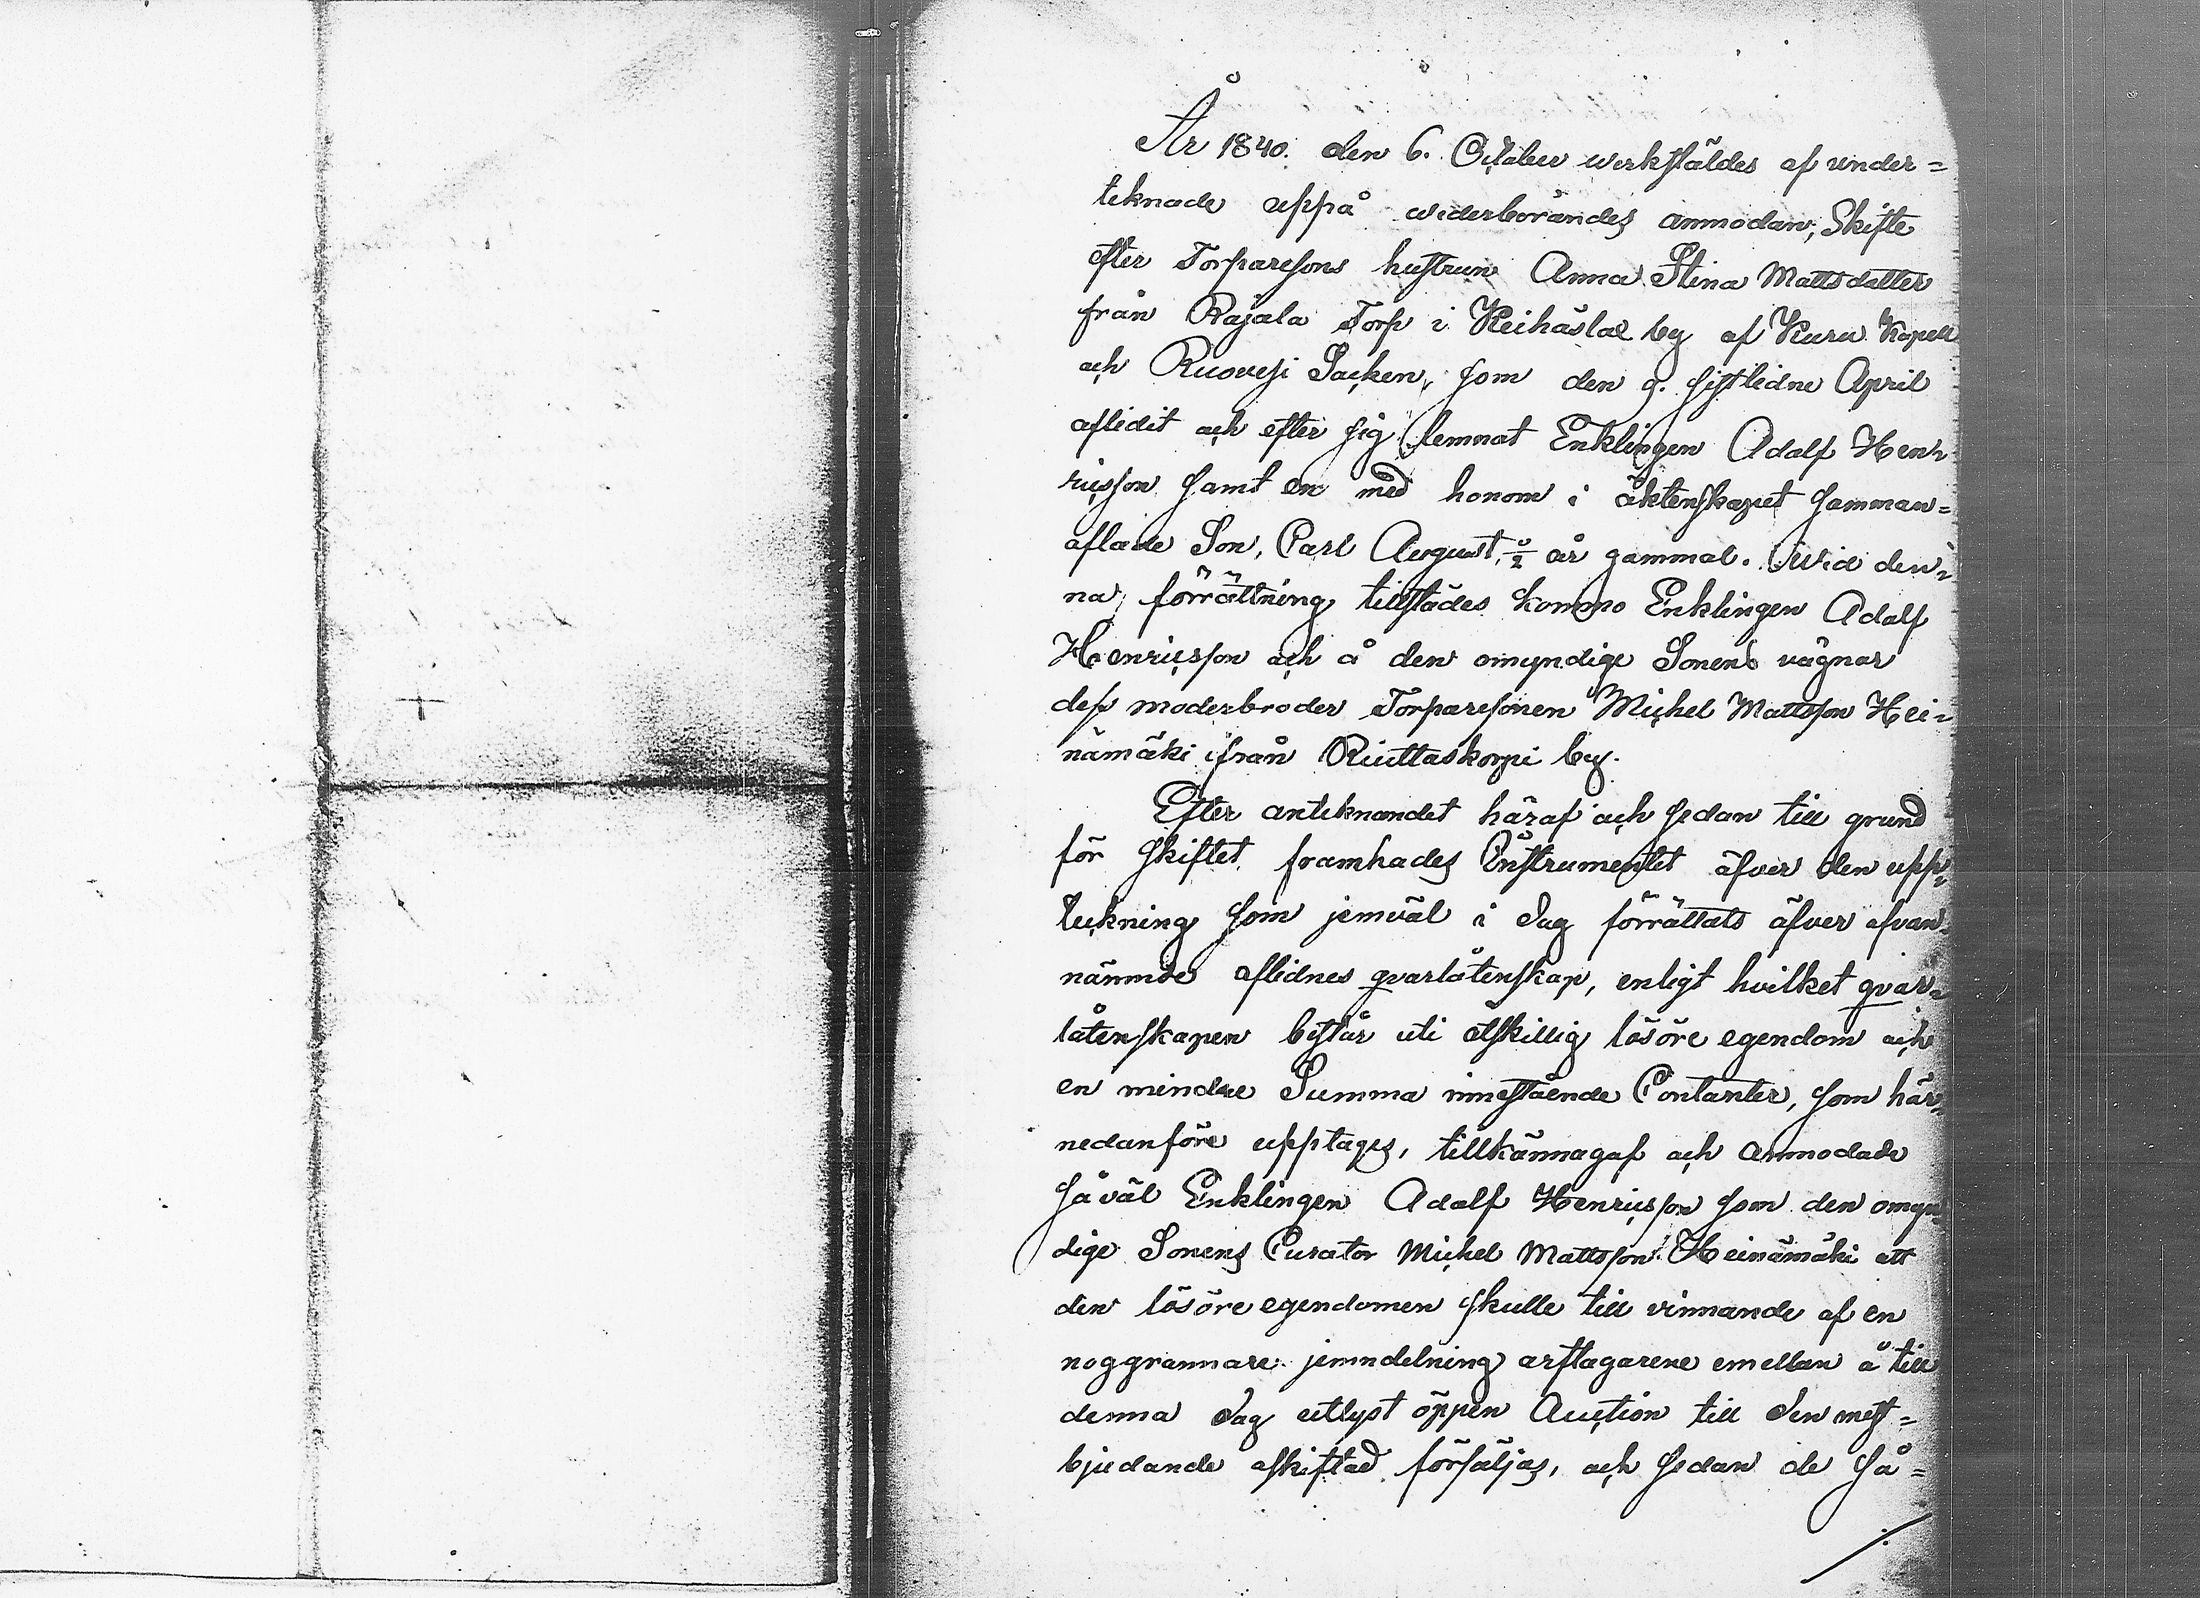 År 1840. den 6. October werkstäldes af under=
teknade uppå wederbörandes anmodan, Skifte
efter Torparesons hustrun Anna Stina Mattsdotter
från Rajala Torp i Keihäslax by af Kuru Kapell
och Ruovesi Socken, som den 9. sistledne April
aflidit och efter sig lemnat Enklingen Adolf Hen=
ricsson samt en med honom i äktenskapet samman=
aflade Son, Carl August, ½ år gammal. Wid den=
na förrättning tillstädes kommo Enklingen Adolf
Henricsson och å den omyndige Sonens vägnar
dess moderbroder Torparesonen Michel Mattsson Hei=
nämäki ifrån Riuttaskorpi by.
Efter anteknandet häraf och sedan till grund
för skiftet framhades Instrumentet öfver den upp=
tekning som jemväl i dag förrättats öfver ofvan
nämnde aflidnes qvarlåtenskap, enligt hvilket qvar=
låtenskapen består uti åtskillig lösöre egendom och
en mindre Summa innestående Contanter, som här
nedanföre upptages, tillkännagaf och anmodade
såväl Enklingen Adolf Henricsson som den omyn
dige Sonens Curator Michel Mattsson Heinämäki att
den lösöre egendomen skulle till vinnande af en
noggrannare jemndelning arftagarene emellan å till
denna dag utlyst öppen Auction till den mest=
bjudande oskiftad försäljas, och sedan de så=